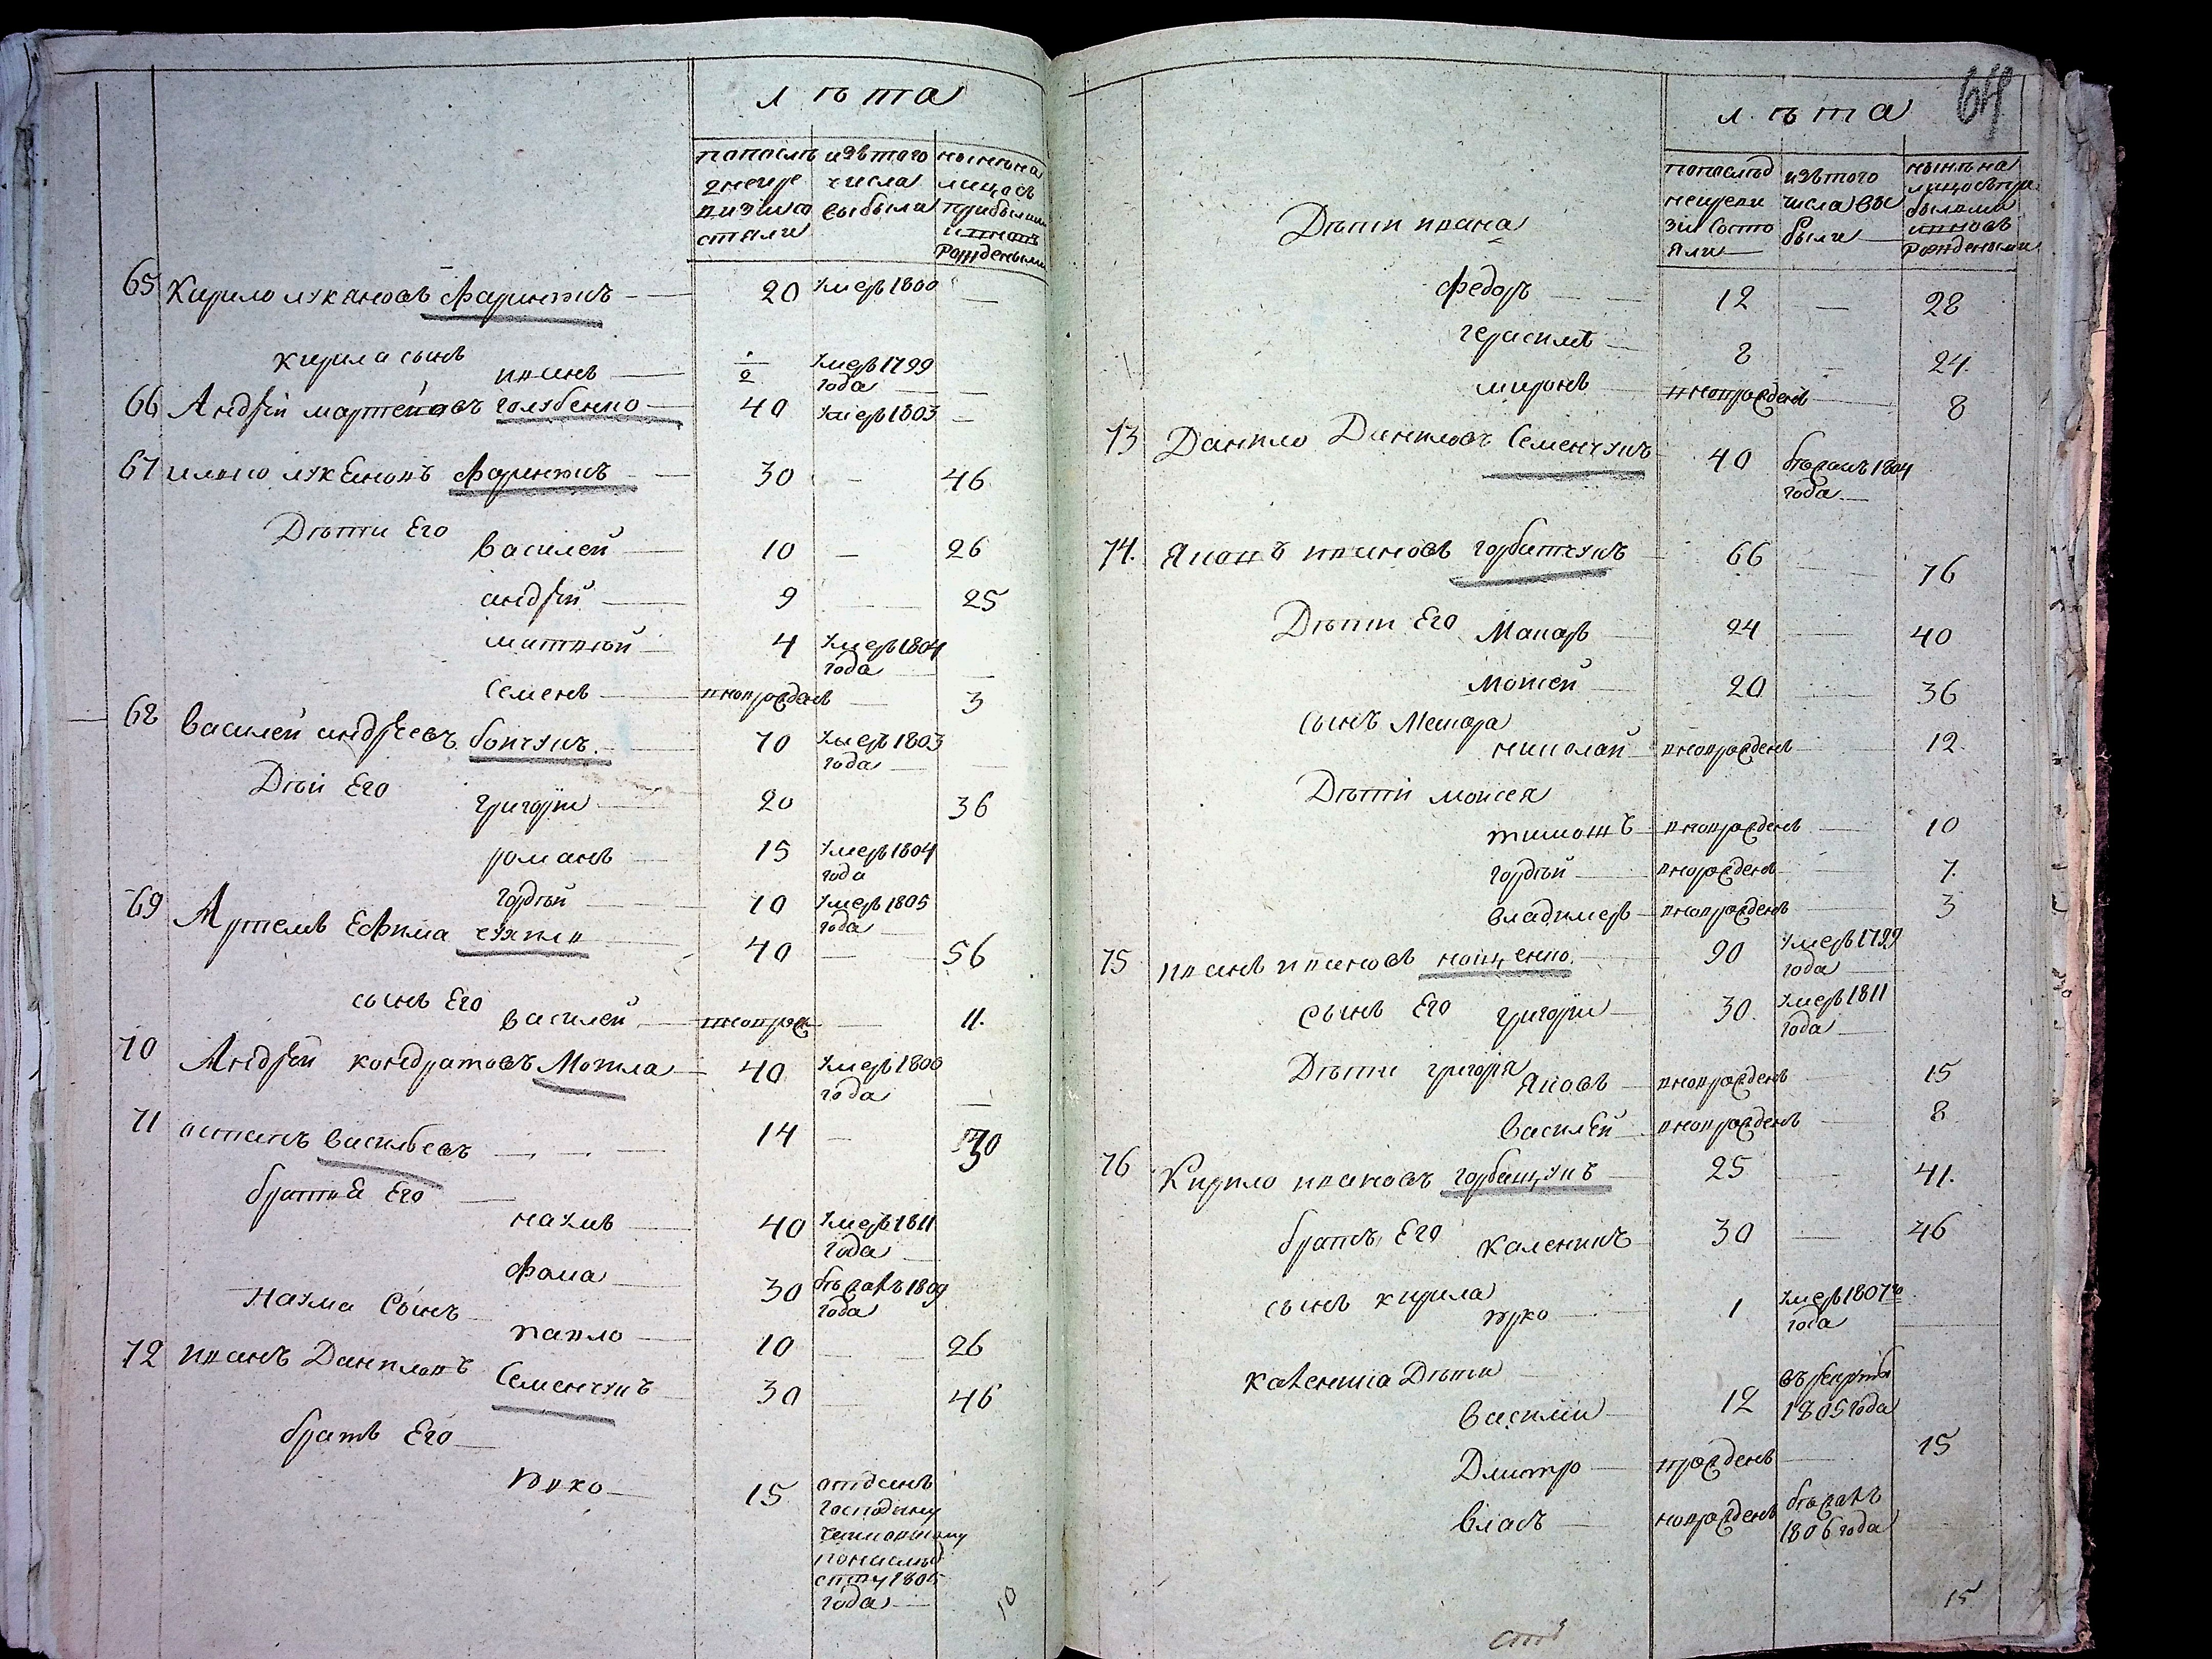 лѣта
попослѣ изъ того нынѣ на
дней ре числа лицо съ
визи со выбыли прибылыми
стояли и вновь
рождеными
65 Кирило лукяновъ Фаринюкъ 20 умеръ 1800
кирила сынъ иванъ умеръ 1799
года
66 Андрѣй мартеновъ голубенко 40 умеръ 1803
67 илько лукяновъ Фаринюкъ 30 — 46
Дѣти Его василей 10 — 26
андрѣй 9 — 25
матвѣй 4 умеръ 1804
года
семенъ вновърожденъ — 3
68 василей андрѣевъ бойчукъ 70 умеръ 1803
года
Дѣти Его григорiй 20 36
романъ 15 умеръ 1804
года
гордѣй 10 умеръ 1805
года
69 Артемъ Ефима 40 — 56
сынъ Его василей — 11.
70 Андрѣй кондратовъ Могила 40 умеръ 1800
года
71 остапъ васильевъ 14 — 30
братья Его
наумъ 40 умеръ 1811
года
Фома 30 бѣжалъ 1809
года
Наума Сынъ
павло 10 — 26
72 иванъ Даниловъ Семенчукъ 30 46
братъ Его
юрко 15 отданъ
господину
1805
года
10
лѣта 64
попослѣд изъ того нынѣ на
ней реви числа вы лицо съ при
зiи состо были былыми
яли и вновь
рождеными
Дѣти ивана
Федоръ 12 — 28
герасимъ 8 24.
миронъ вновърожденъ 8
73 Данило Даниловъ Семенчукъ 40 бѣжалъ 1804
года
74. Яковъ ивановъ горбатчукъ 66 76
Дѣти Его Макаръ 24 — 40
Мойсей 20 — 36
сынъ Макара
николай вновърожденъ 12.
Дѣти мойсея
тимошъ вновърожденъ 10
гордѣй вновърожденъ 7.
владимеръ вновърожденъ 3
75 иванъ ивановъ коиценко 90 умеръ 1799
года
сынъ Его григорiй 30. умеръ 1811
года
Дѣти григорiя Яковъ вновърожденъ 15
василѣй вновърожденъ 8
76 Кирило ивановъ горбацукъ 25 41.
братъ Его каленикъ 30 — 46
сынъ кирила юрко 1 умеръ 1807го
года
каленика Дѣти
василiй 12 въ рекруты
1805 года
Дмитро врожденъ 15
власъ новорожденъ бѣжалъ
1806 года
15